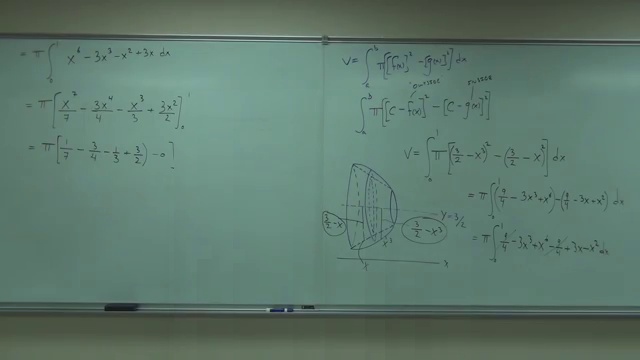 = π ∫₀¹ x⁶ - 3x³ - x² + 3x dx
= π [x⁷/7 - 3x⁴/4 - x³/3 + 3x²/2]₀¹
= π [(1/7 - 3/4 - 1/3 + 3/2) - 0]
V = ∫ₐᵇ π[[f(x)]² - [g(x)]²] dx
outside inside
∫ₐᵇ π[[C - f(x)]² - [C - g(x)]²]
V = ∫₀¹ π[(3/2 - x³)² - (3/2 - x)²] dx
= π ∫₀¹ (9/4 - 3x³ + x⁶) - (9/4 - 3x + x²) dx
= π ∫₀¹ 9/4 - 3x³ + x⁶ - 9/4 + 3x - x² dx
y = 3/2
3/2 - x
3/2 - x³
x³
x
x